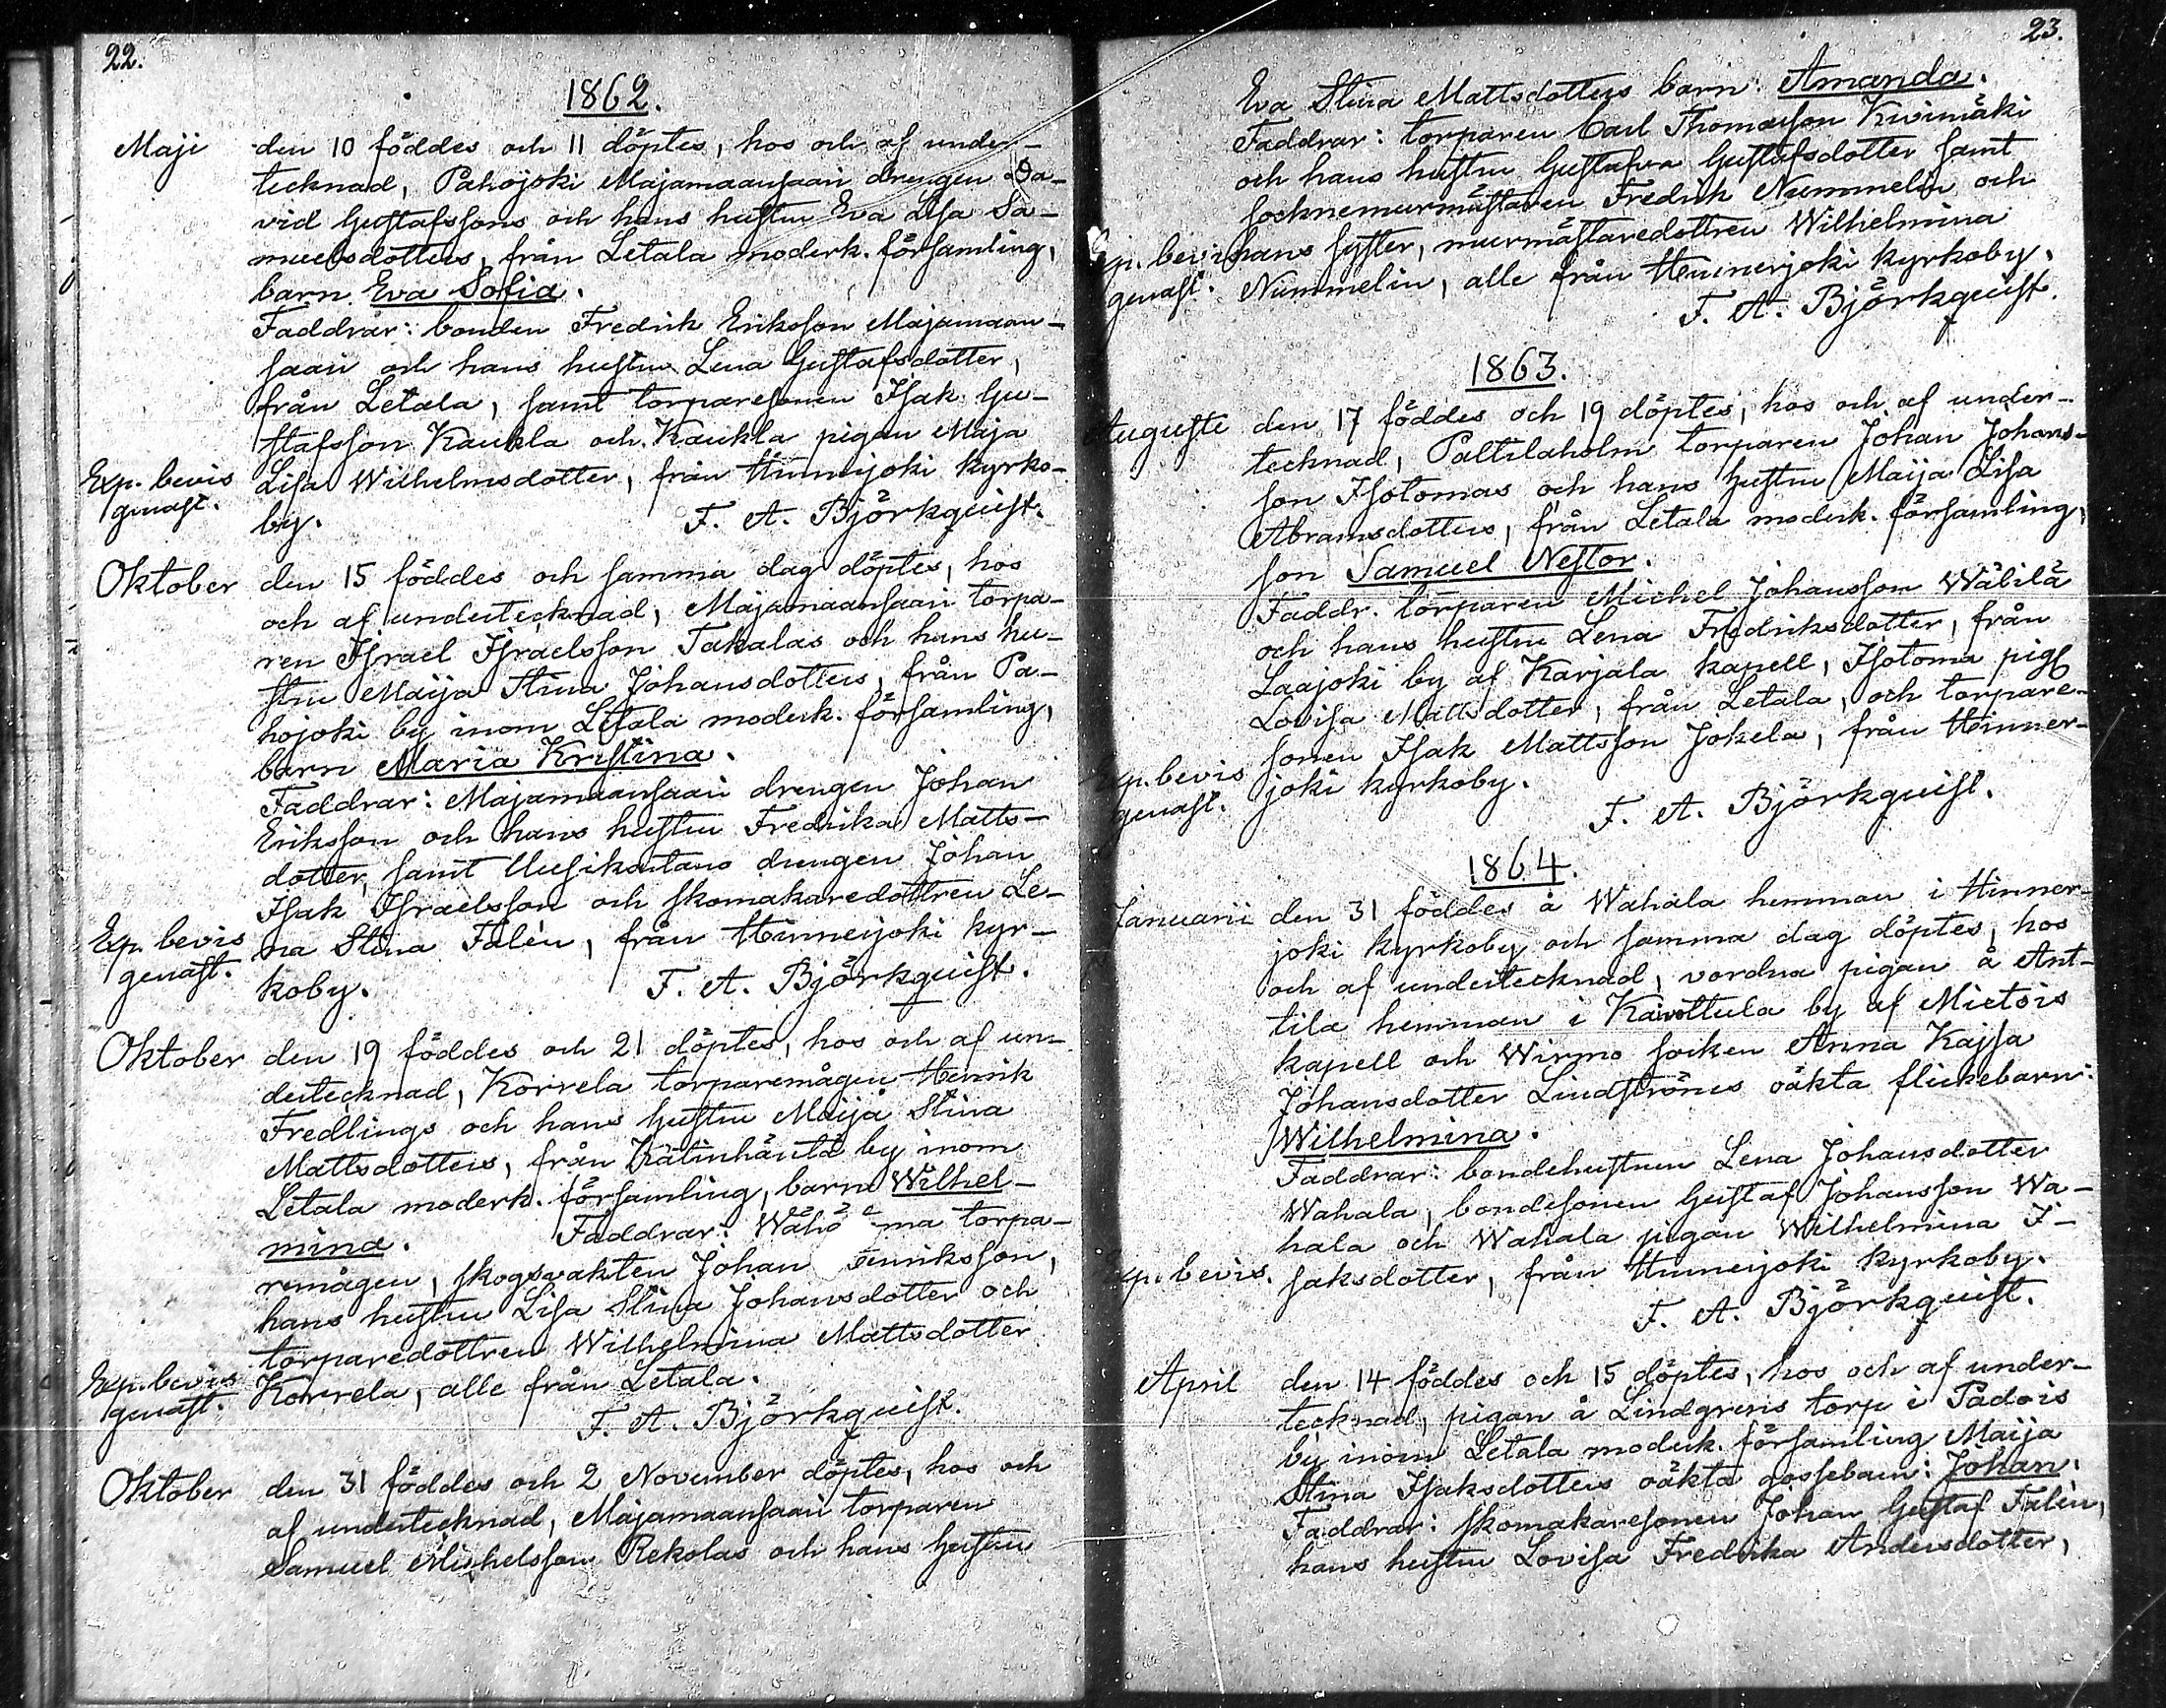 22.
1862.
Maji den 10 föddes och 11 döptes, hos och af under-
tecknad, Pahojoki Majamaansaari drengen Da-
vid Gustafssons och hans hustru Eva Lisa Sa-
muelsdotters, från Letala moderk. församling,
barn Eva Sofia.
Faddrar: bonden Fredrik Eriksson Majamaan-
saari och hans hustru Lena Gustafsdotter,
från Letala, samt torparesonen Isak Gu-
stafsson Kaukla och Kaukla pigan Maja
Exp. bevis Lisa Wilhelmsdotter, från Hinnerjoki kyrko-
genast. by. F. A. Björkqvist.
Oktober den 15 föddes och samma dag döptes, hos
och af undertecknad, Majamaansaari torpa-
ren Israel Israelsson Takalas och hans hu-
stru Maija Stina Johansdotters, från Pa-
hojoki by inom Letala moderk. församling,
barn Maria Kristina.
Faddrar: Majamaansaari drengen Johan
Eriksson och hans hustru Fredrika Matts-
dotter, samt Uusikartano drengen Johan
Isak Israelsson och skomakaredottren Le-
Exp. bevis na Stina Falén, från Hinnerjoki kyr-
genast. koby. F. A. Björkqvist.
Oktober den 19 föddes och 21 döptes, hos och af un-
dertecknad, Korrela torparemågen Henrik
Fredlings och hans hustru Maija Stina
Mattsdotters, från Kätinhäntä by inom
Letala moderk. församling, barn Wilhel-
mina. Faddrar: Wähä ma torpa-
remågen, skogsvakten Johan enriksson,
hans hustru Lisa Stina Johansdotter och
torparedottren Wilhelmina Mattsdotter
Exp. bevis Korrela, alle från Letala.
genast. F. A. Björkqvist.
Oktober den 31 föddes och 2 November döptes, hos och
af undertecknad, Majamaansaari torparen
Samuel Michelsson Rekolas och hans hustru
23.
Eva Stina Mattsdotters barn: Amanda.
Faddrar: torparen Carl Thomasson Kivimäki
och hans hustru Gustafva Gustafsdotter samt
socknemurmästaren Fredrik Nummelin och
Exp. bevis hans syster, murmästaredottren Wilhelmina
genast. Nummelin, alle från Hinnerjoki kyrkoby.
F. A. Björkqvist.
1863.
Augusti den 17 föddes och 19 döptes, hos och af under-
tecknad, Paltilaholm torparen Johan Johans-
son Isotomas och hans hustru Maija Lisa
Abramsdotters, från Letala moderk. församling,
son Samuel Nestor.
Faddr. torparen Michel Johansson Wälilä
och hans hustru Lena Fredriksdotter, från
Laajoki by af Karjala kapell, Isotoma pig.
Lovisa Mattsdotter, från Letala, och torpare-
sonen Isak Mattsson Jokela, från Hinner-
Exp. bevis joki kyrkoby.
genast. F. A. Björkqvist.
1864.
Januarii den 31 föddes å Wahala hemman i Hinner-
joki kyrkoby och samma dag döptes, hos
och af undertecknad, vordna pigan å Ant-
tila hemman i Kavottula by af Mietois
kapell och Wirmo socken Anna Kajsa
Johansdotter Lindströms oäkta flickebarn:
Wilhelmina.
Faddrar: bondehustrun Lena Johansdotter
Wahala, bondesonen Gustaf Johansson Wa-
hala och Wahala pigan Wilhelmina I-
Exp. bevis. saksdotter, från Hinnerjoki kyrkoby.
F. A. Björkqvist.
April den 14 föddes och 15 döptes, hos och af under-
tecknad, pigan å Lindgrens torp i Padois
by inom Letala moderk. församling Maija
Stina Isaksdotters oäkta gossebarn: Johan.
Faddrar: skomakaresonen Johan Gustaf Falén,
hans hustru Lovisa Fredrika Andersdotter,